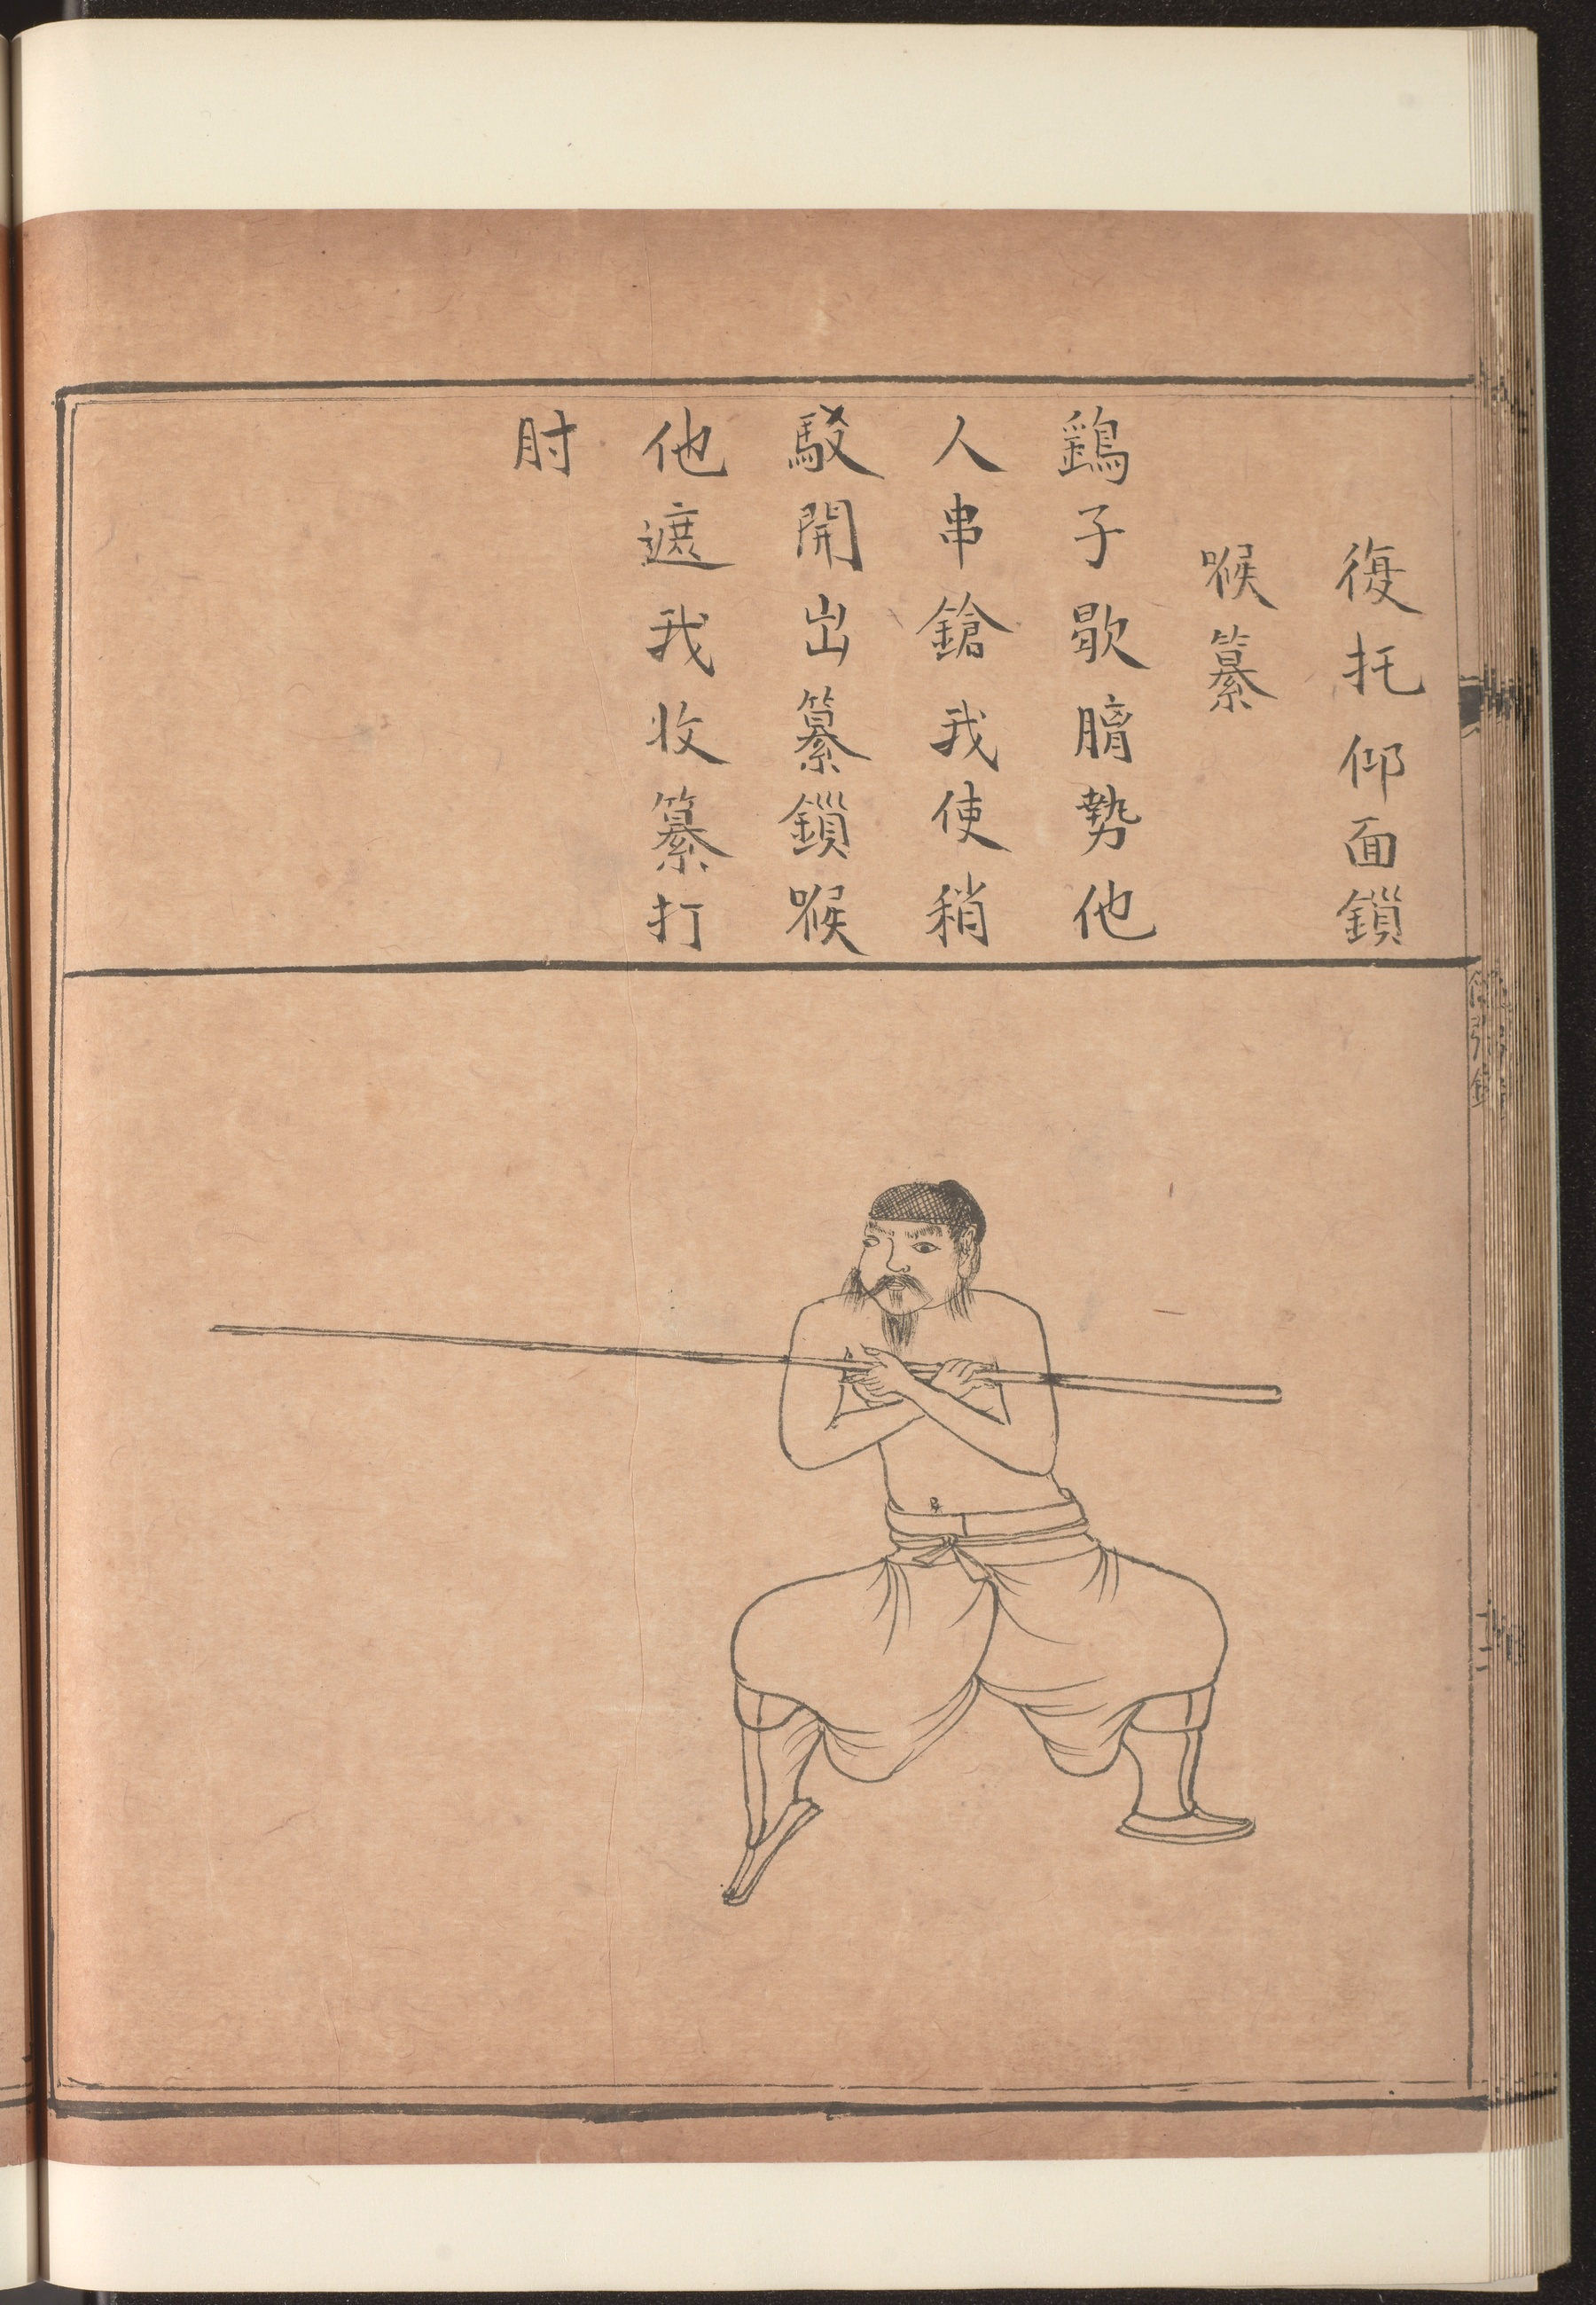 復托仰面鎖
喉纂
鷂子歇膀勢他
人串鎗我使稍
駁開出纂鎖喉
他遮我收纂打
肘